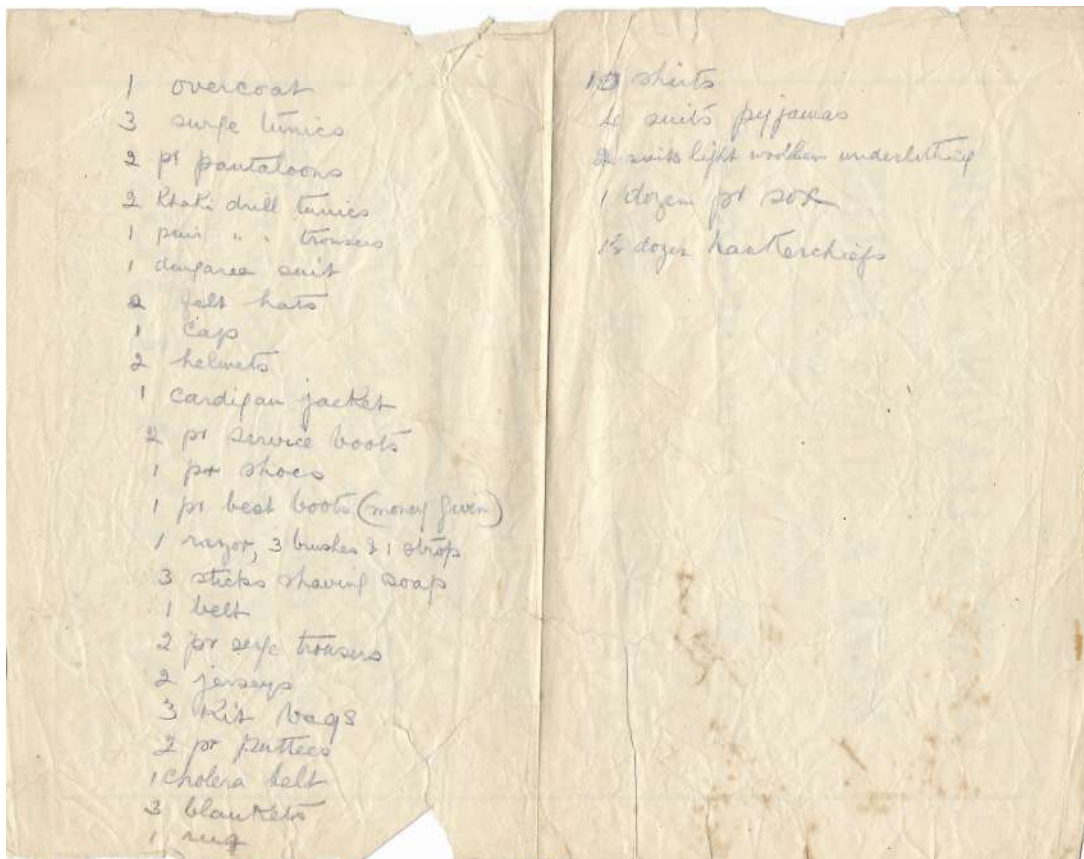 1 overcoat
3 surge tunics
2 pr pantaloons
2 Khaki drill tunics
1 pair " " trousers
1 dungaree suit
2 felt hats
1 cap
2 helmets
1 cardigan jacket
2 pr service boots
1 pr shoes
1 pr best boots (money given)
1 razor, 3 brushes & 1 strop
3 sticks shaving soap
1 belt
2 pr serge trousers
2 jerseys
3 Kit bags
2 pr puttees
1 cholera belt
3 blankets
1 rug
shirts
suits pyjamas
2 suits light woollen underclothing
1 dozen pr sox
dozen hankerchiefs